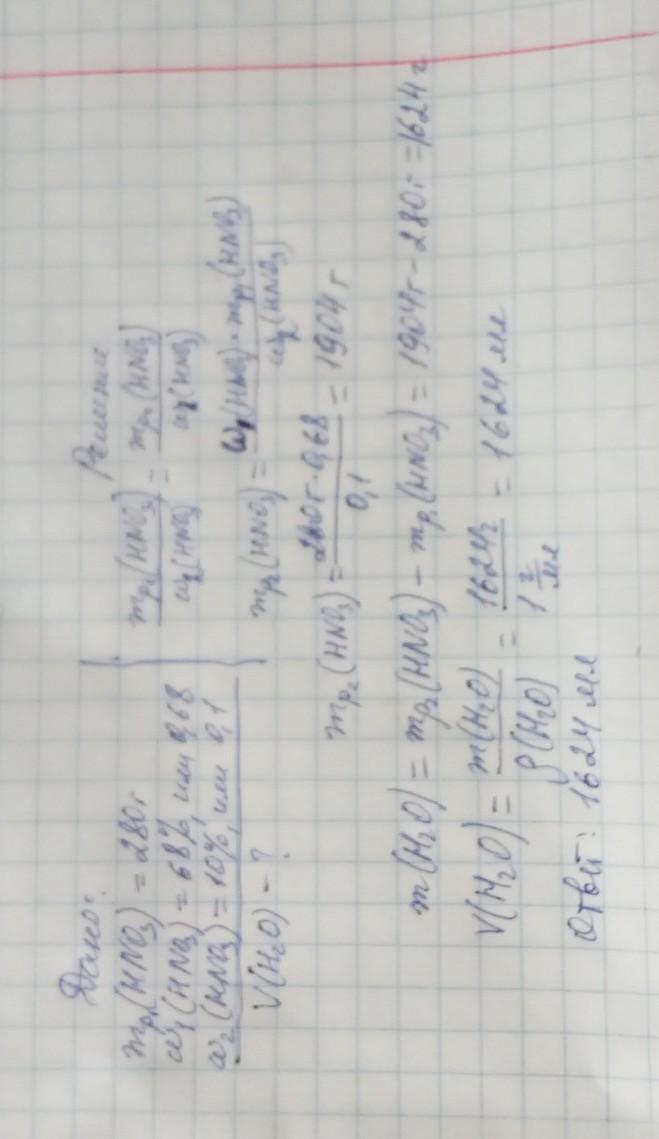 Дано:
mp₁(HNO₃) = 280г
ω₁(HNO₃) = 68%, или 0,68
ω₂(HNO₃) = 10%, или 0,1
V(H₂O) - ?
Решение
mp₁(HNO₃) / ω₂(HNO₃) = mp₂(HNO₃) / ω₁(HNO₃)
mp₂(HNO₃) = ω₁(HNO₃) · mp₁(HNO₃) / ω₂(HNO₃)
mp₂(HNO₃) = 280г · 0,68 / 0,1 = 1904 г
m(H₂O) = mp₂(HNO₃) - mp₁(HNO₃) = 1904г - 280г = 1624 г
V(H₂O) = m(H₂O) / ρ(H₂O) = 1624г / 1 г/мл = 1624 мл
Ответ: 1624 мл